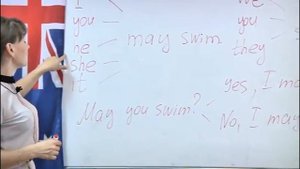 I we
you you
he may swim they
she
it yes, I ma
May you swim?
No, I may